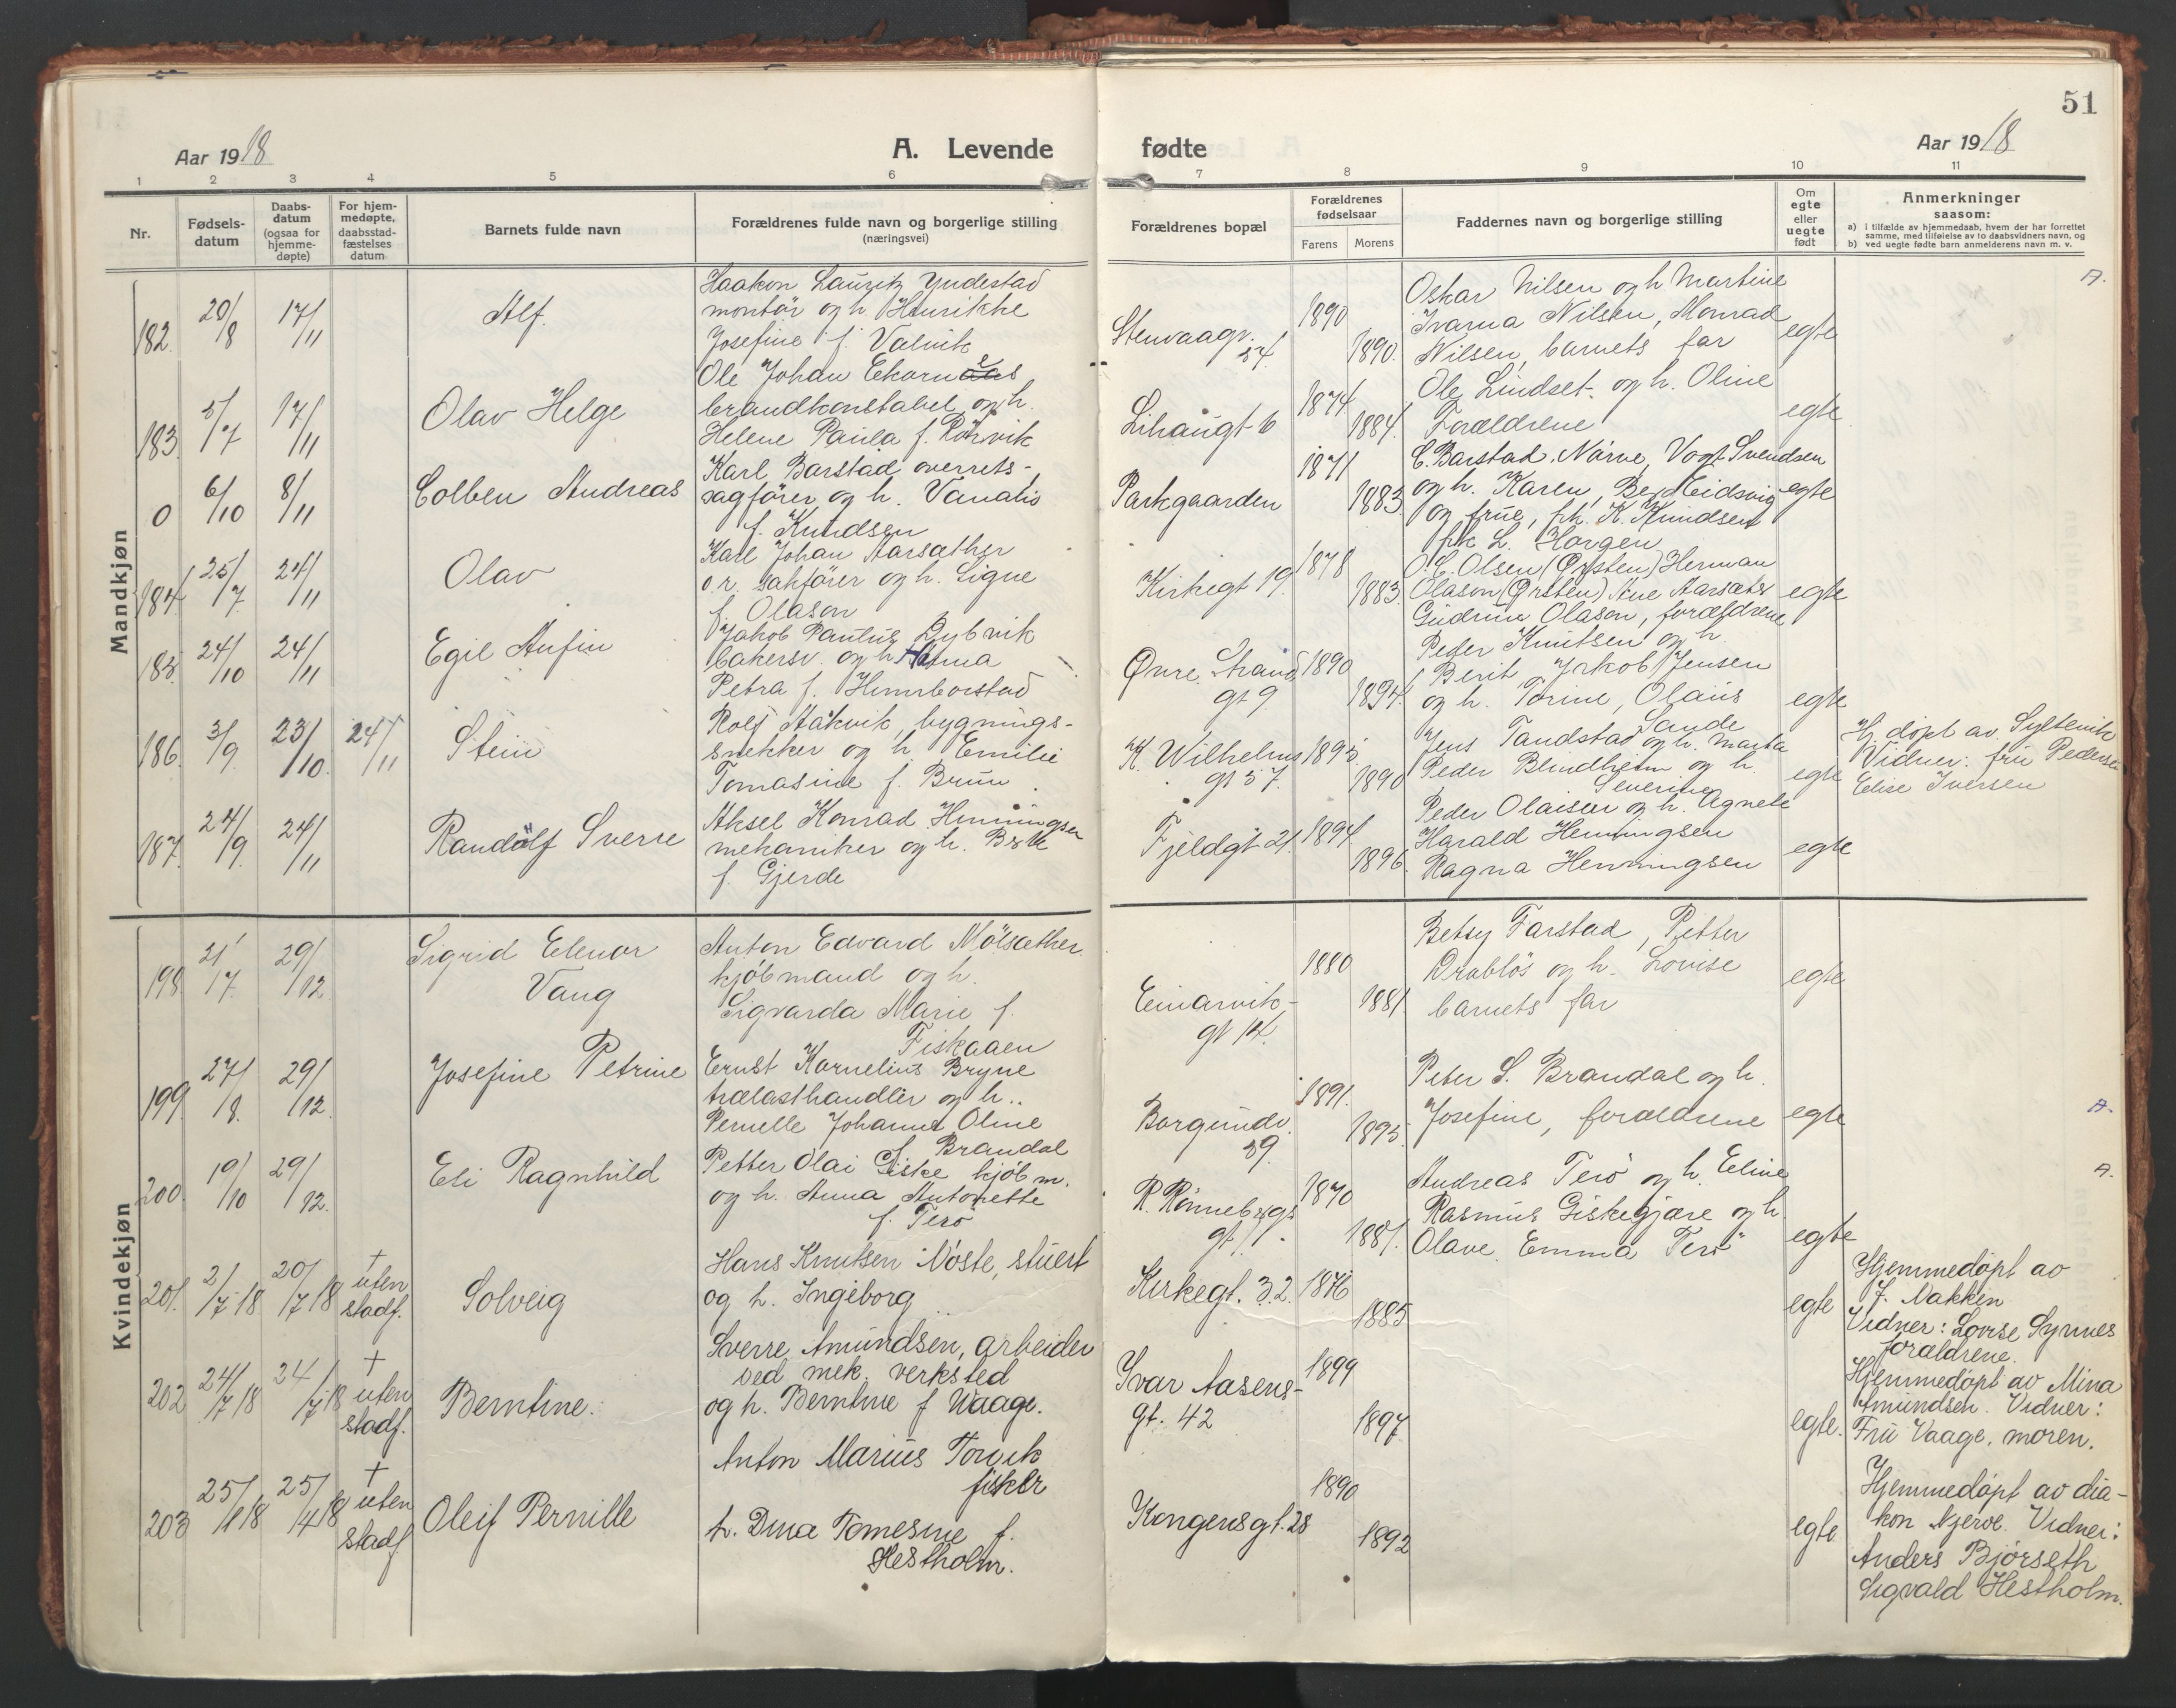 51
Aar 1918
A. Levende fødte
Aar 1918
1 2 3 4 5 6 7 8 9 10 11
Nr.
Fødsels-
datum
Daabs-
datum
(ogsaa for
hjemme-
døpte)
For hjem-
medøpte,
daabsstad-
fæstelses
datum
Barnets fulde navn
Forældrenes fulde navn og borgerlige stilling
(næringsvei)
Forældrenes bopæl
Forældrenes
fødselsaar
Farens Morens
Faddernes navn og borgerlige stilling
Om
egte
eller
uegte
født
Anmerkninger
saasom:
a) i tilfælde av hjemmedaab, hvem der har forrettet
samme, med tilføielse av to daabsvidners navn, og
b) ved uegte fødte barn anmelderens navn m. v.
Mandkjøn
182. 20/8 17/11
Alf.
Haakon Lauritz Yndestad
montør og h. Henrikke
Josefine f. Valvik
Stenvaagv.
54.
1890
1890.
Oskar Nilsen og h Martine
Ivarna Nilsen, Monrad
Nilsen, barnets far
egte
A.
183. 5/7 17/11
Olav Helge
Ole Johan Ekornes
brandkonstabel og h.
Helene Paula f. Rørvik
Lihaugt 6
1874.
1884.
Ole Lindset og h. Oline
Forældrene
egte
0 6/10 8/11
Colben Andreas
Karl Barstad overrets-
sagfører og h. Vanatis
f. Knudsen
Parkgaarden
1871
1883.
C. Barstad. Nørve, Vogt Svendsen
og h. Karen, Meidsvig
og frue, frk. K. Knudsen
frk L. Horgen
egte
184. 25/7 24/11
Olav
Karl Johan Aarsæther
o.r. sakfører og h. Signe
f. Olason
Kirkegt 19.
1878
1883.
O. C. Olsen (Ørsten) Herman
Olason (Ørsten) Aarsæter
Gudrun Olason, forældrene
egte
185. 24/10 24/11
Egil Anfin
Jakob Paulus Dybvik
bakersv. og h.
Petra f. Humborstad
Øvre Strand
gt 9
1890
1894.
Peder Knutsen og h.
Berit Jakob Jensen
og h. Torine, Olaus
Sande
egte
186. 3/9. 23/10. 24/11
Stein
Rolf Stakvik, bygnings-
snekker og h. Emilie
Tomasine f. Brun.
K. Wilhelms
gt 57.
1895.
1890
Jens Tandstad og h. Marta
Peder Blindheim og h.
Severine
egte
Hj. døpt av Syltevik
Vidner: fru Pedersen
Elise Iversen
187. 24/9. 24/11
Randolf Sverre
Aksel Konrad Henningsen
mekaniker og h.
f. Gjerde
Fjeldgt 21.
1894.
1896.
Peder Olaisen og h. Agnete
Harald Henningsen
Ragna Henningsen
egte
Kvindekjøn
198 21/7 29/12
Sigrid Elenor
Vang
Anton Edvard Mølsæther
kjøbmand og h.
Sigvarda Marie f.
Fiskaaen
Einarvik-
gt 14.
1880
1881.
Betsy Farstad, Petter
Drabløs og h. Lovise
barnets far
egte
199 27/8. 29/12.
Josefine Petrine
Ernst Kornelius Bryne
trælasthandler og h..
Pernelle Johanne Oline
f. Brandal
Borgundv.
39.
1891.
1895.
Peter S. Brandal og h.
Josefine, forældrene
egte
A.
200. 19/10 29/12.
Eli Ragnhild
Petter Olai Giske kjøbm.
og h. Anna Antonette
f. Terø
R. Rønnebergs
gt
1870
1881.
Andreas Terø og h. Eline
Rasmus Giskegjære og h.
Olave. Emma Terø
egte
A.
201. 2/7-18 20/7 18
† uten
stadf.
Solveig
Hans Knutsen Nøste, stuert
og h. Ingeborg
Kirkegt. 32.
1876
1885
egte
Hjemmedøpt av
J. Nakken
Vidner: Lovise Synnes
forældrene.
202 24/7 18 24/7 18
† uten
stadf.
Berntine.
Sverre Amundsen, arbeider
ved mek. verksted
og h. Berntine f Waage.
Ivar Aasens-
gt. 42
1899
1897
egte.
Hjemmedøpt av Mina
Amundsen. Vidner:
Fru Vaage, moren.
203 25/ 18 25/4 18
† uten
stadf
Oleif Pernille
Anton Marius Torvik
fisker
h. Dina Tomesine f.
Hestholm.
Kongensgt. 28
1890
1892
egte
Hjemmedøpt av dia-
kon Njerve. Vidner:
Anders Bjørseth
Sigvald Hestholm.